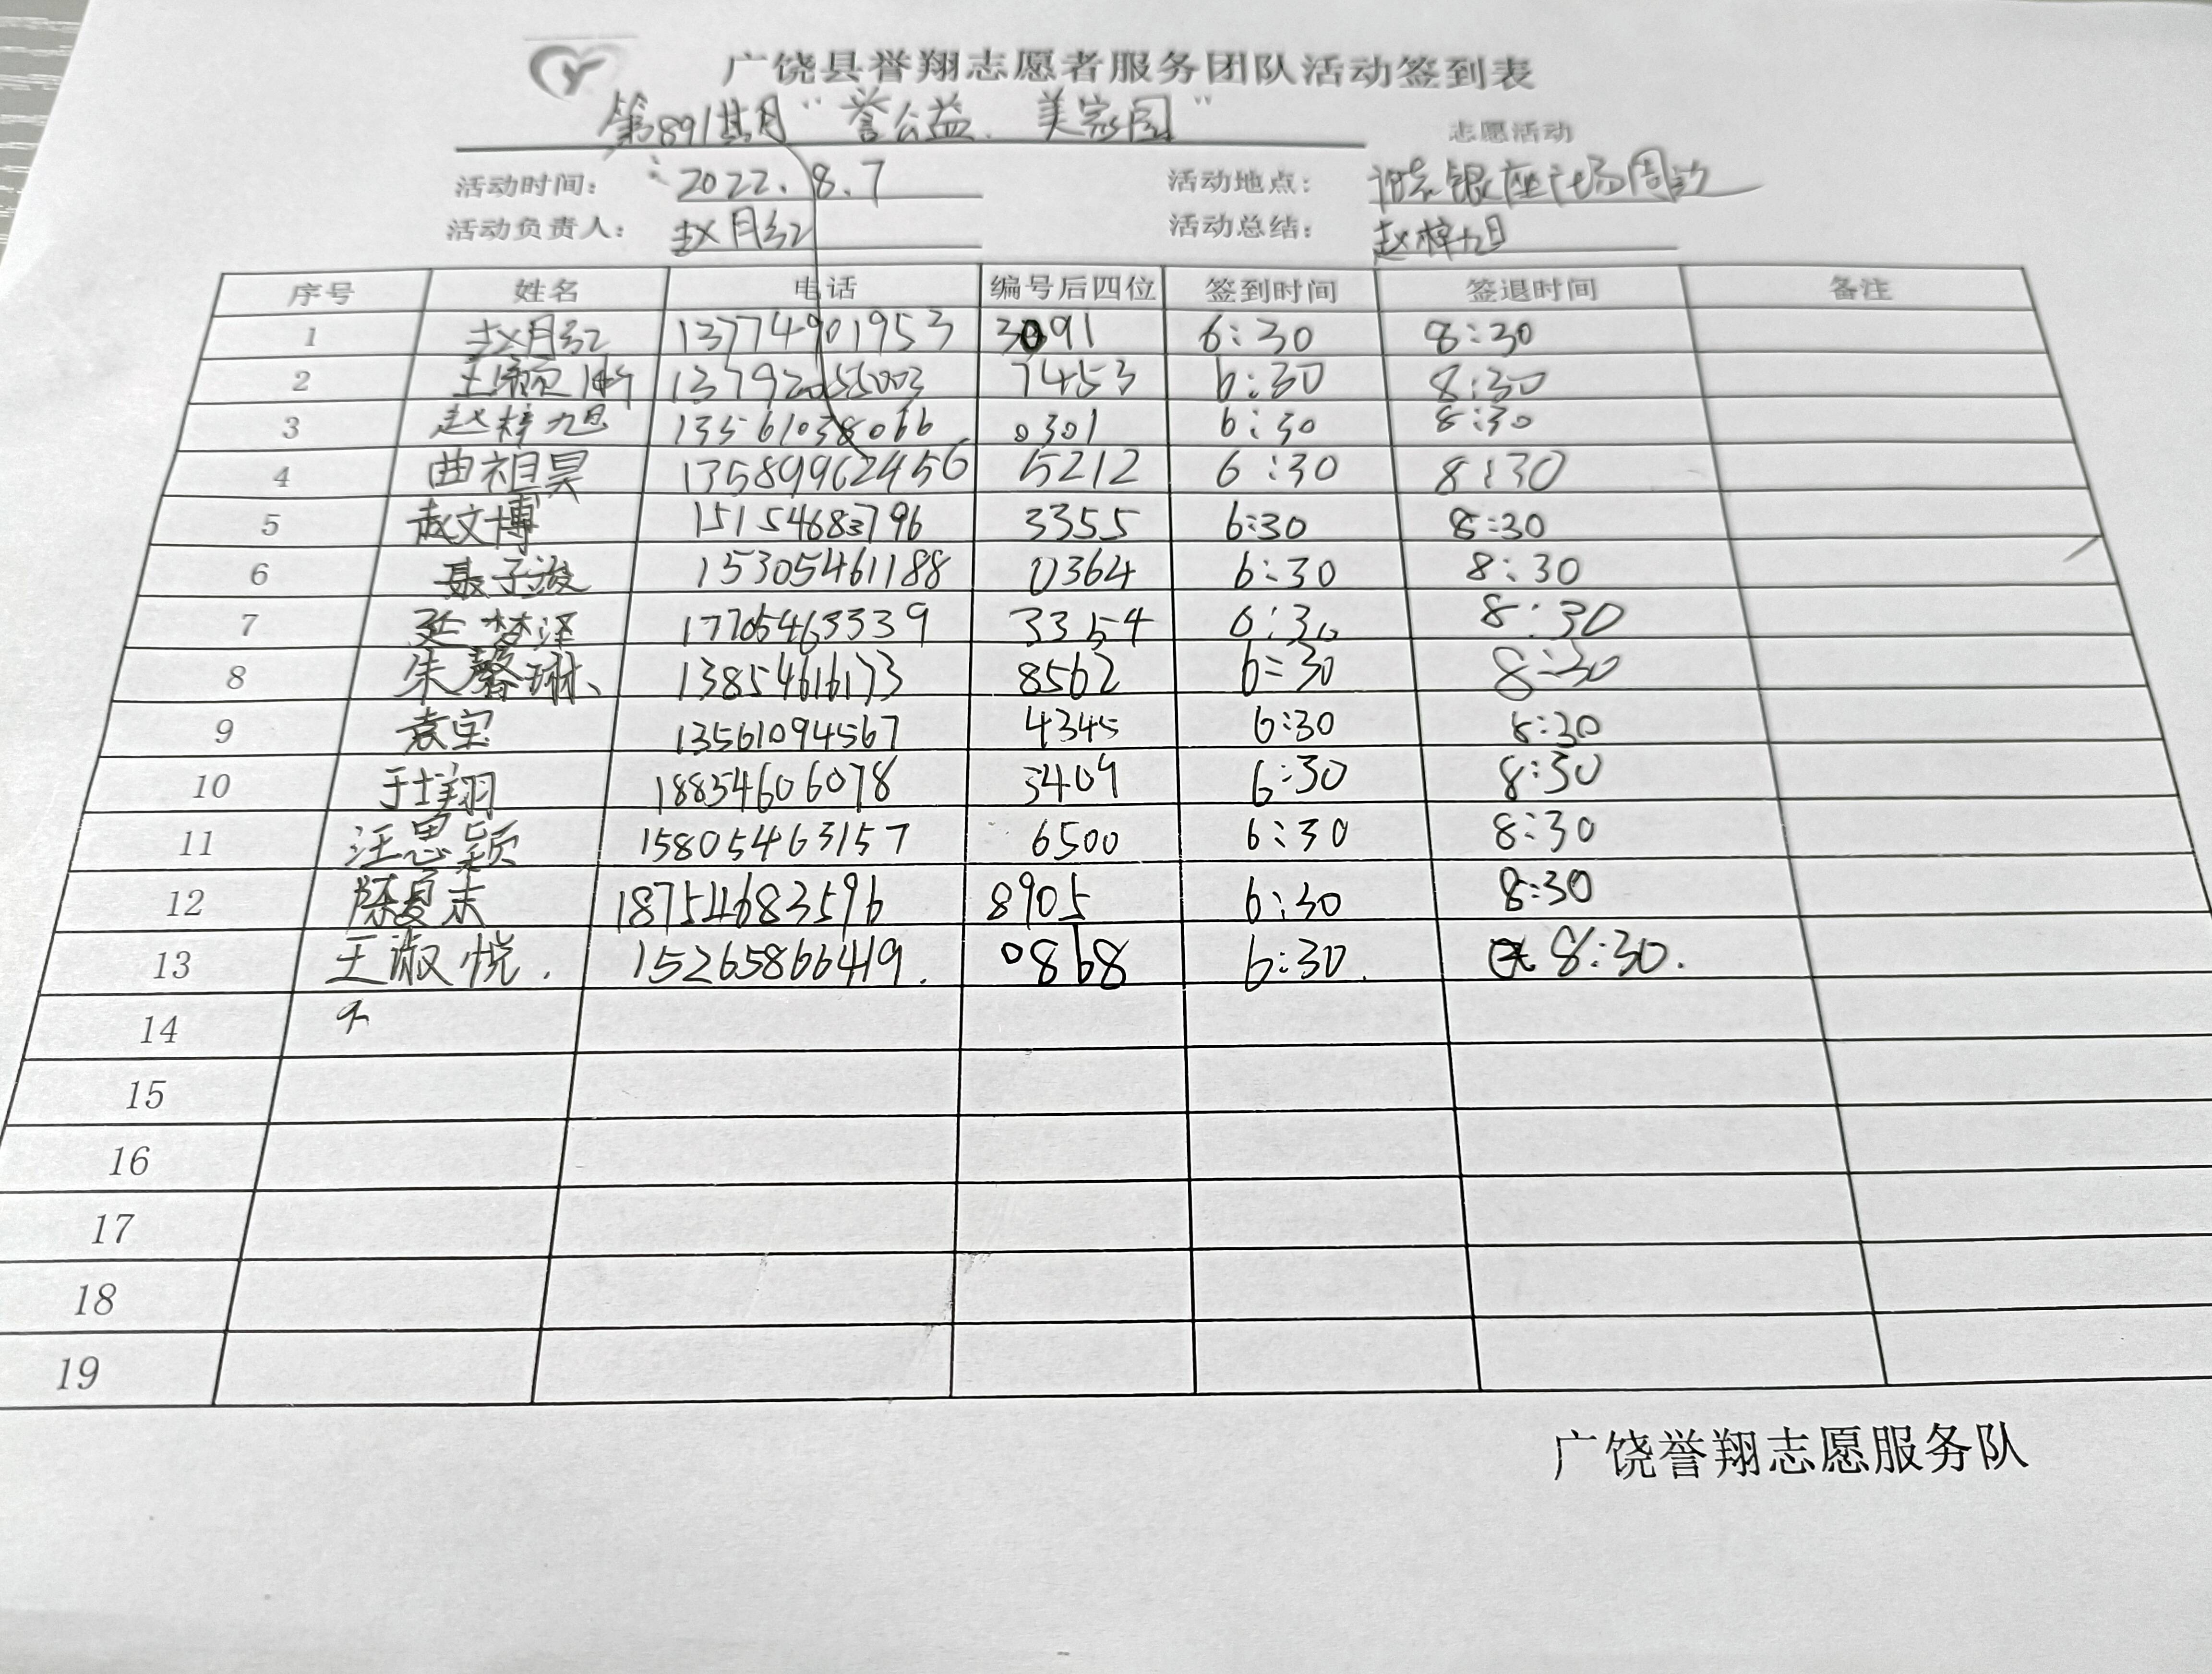 广饶县誉翔志愿者服务团队活动签到表
第891期“誉公益、美家园” 志愿活动
活动时间： 2022.8.7 活动地点： 银座广场周边
活动负责人： 赵月红 活动总结： 赵梓旭
序号 姓名 电话 编号后四位 签到时间 签退时间 备注
1 赵月红 13774901953 3091 6:30 8:30
2 13792055003 7453 6:30 8:30
3 赵梓旭 13561038066 0301 6:30 8:30
4 曲祖昊 13589962456 5212 6:30 8:30
5 赵文博 15154683796 3355 6:30 8:30
6 聂子浚 15305461188 0364 6:30 8:30
7 梦泽 17705463339 3354 6:30 8:30
8 朱馨琳、 13854616173 8562 6:30 8:30
9 袁宝 13561094567 4345 6:30 8:30
10 18854606078 3409 6:30 8:30
11 汪思颖 15805463157 6500 6:30 8:30
12 陈夏末 18754683596 8905 6:30 8:30
13 王淑悦. 15265866419. 0868 6:30. 8:30.
14
15
16
17
18
19
广饶誉翔志愿服务队